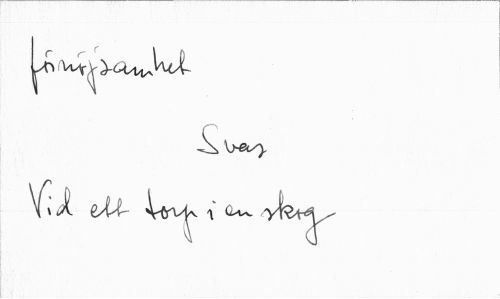 förnöjsamhet
Svar
Vid ett torp i en skog